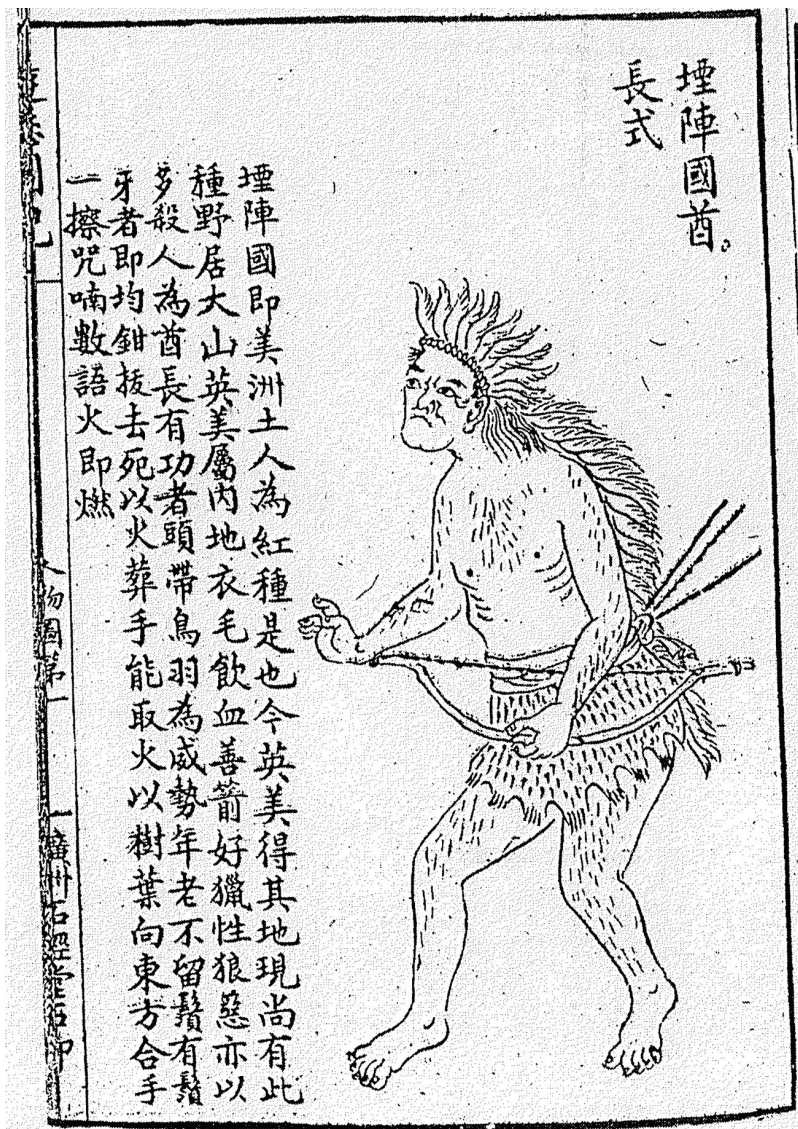 堙陣國酋。
長式
堙陣國即美洲土人為紅種是也今英美得其地現尚有此
種野居大山英美屬內地衣毛飲血善箭好獵性狼惡亦以
多殺人為酋長有功者頭帶鳥羽為威勢年老不留鬚有鬚
牙者即均鉗拔去死以火葬手能取火以樹葉向東方合手
一擦咒喃數語火即燃
人物圖第一